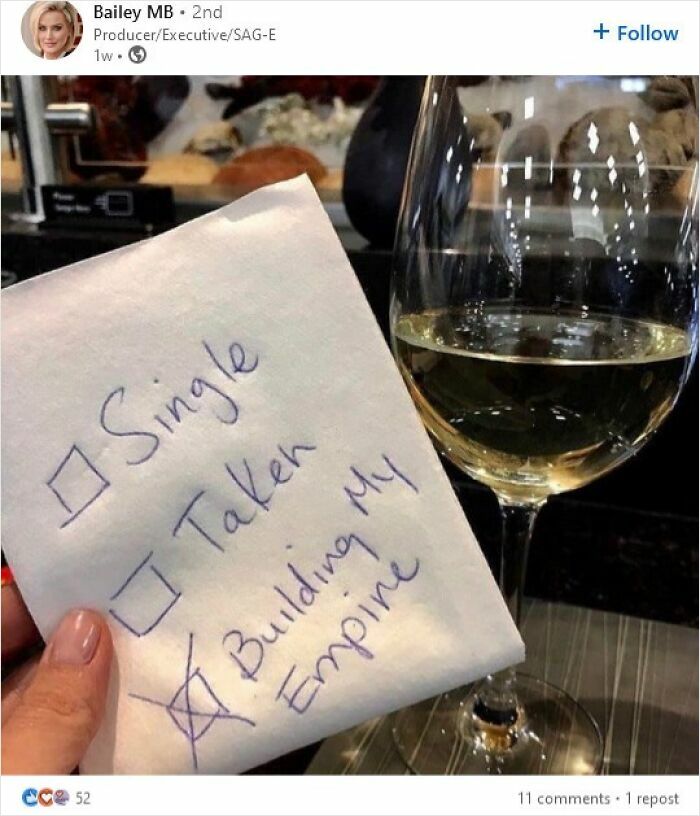 Bailey MB • 2nd
Producer/Executive/SAG-E
1w •
+ Follow
Single
Taken
Building My
Empire
52
11 comments • 1 repost